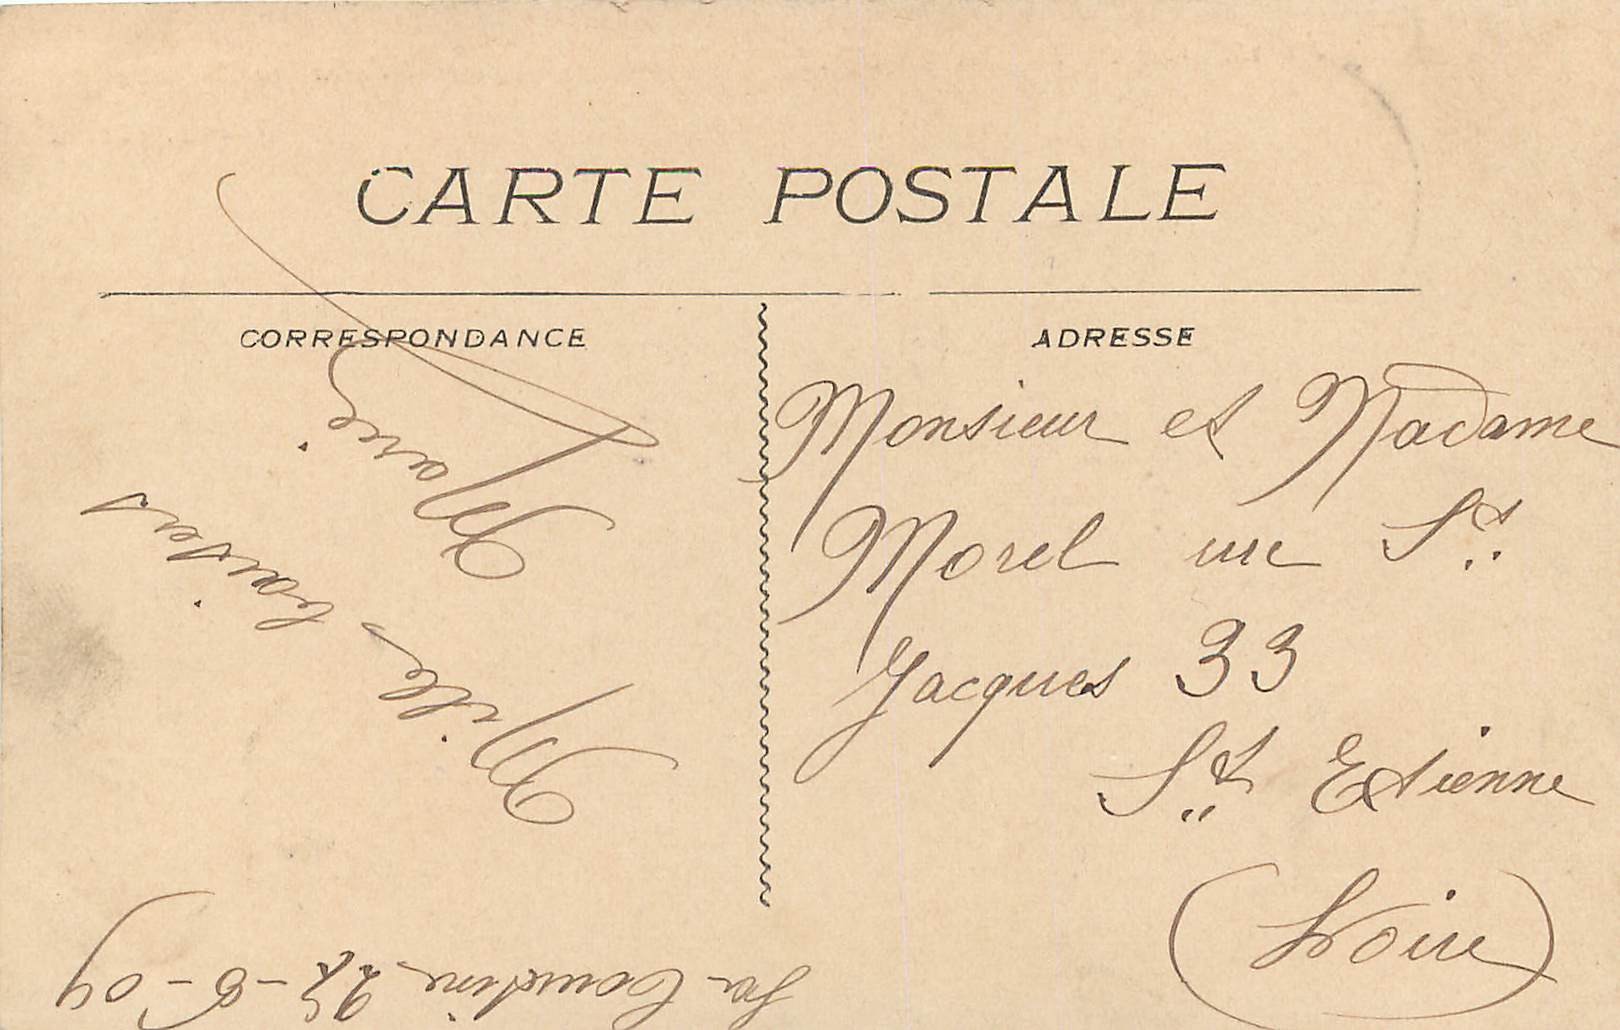 CARTE POSTALE
CORRESPONDANCE
ADRESSE
Monsieur et Madame
Morel rue St
Jacques 33
St Etienne
(Loire)
Mille baisers
Marie